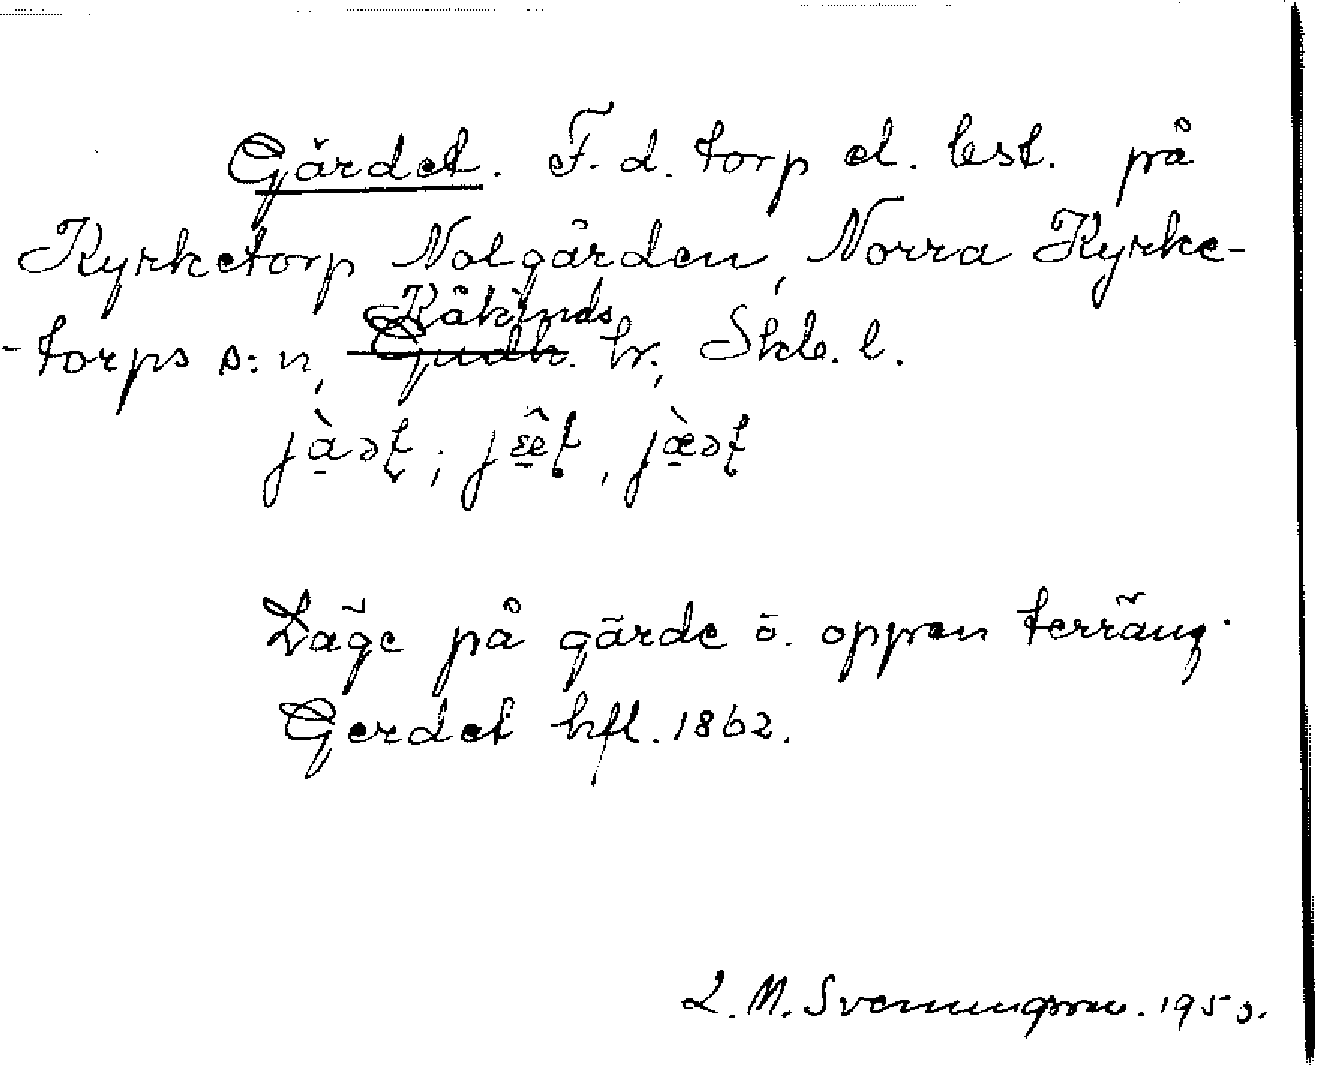 Gärdet. F. d. torp el. lest. på
Kyrketorp Nolgården, Norra Kyrke-
-torps s:n, Kåkinds Gudh. hr., Skb. l.
Läge på gärde o. öppen terräng.
Gerdet hfl. 1862.
L. M. Svenungsson. 1950.